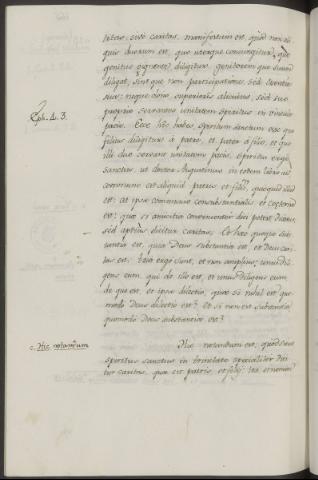 bitas, sive caritas. Manifestum est, quod non ali
quis duorum est, quo uterque conjungitur, quo
genitus a gignente diligitur, genitorem que suum
diligat, sint que non participatione, sed essentia
sua; neque dono superioris alicuius, sed suo
proprio servantes unitatem spiritus in vinculo
Eph. 4. 3.
pacis. Ecce hic habes, spiritum sanctum esse quo
filius diligitur a patre, et pater a filio, et quo
illi duo servant unitatem pacis. Spiritus ergo
Sanctus, ut dicit Augustinus in eodem libro 6.
commune est aliquid patris et filii, quicquid illud
est: at ipsa communio consubstantialis et coeterna
est: quæ si amicitia convenienter dici potest, dicatur,
sed aptius dicitur caritas. Et hæc quoque subs
tantia est, quia Deus substantia est, et Deus cari
tas est. Tria ergo sunt, et non amplius; unus dili
gens eum, qui de illo est, et unus diligens eum,
de quo est, et ipsa dilectio, quæ si nihil est, quo
modo Deus dilectio est? Et si non est substantia
quomodo Deus substantia est?
c. Hic notandum
Hic notandum est, quod sicut
spiritus sanctus in trinitate specialiter dici
tur caritas, quæ est patris, et filii; ita et nomen